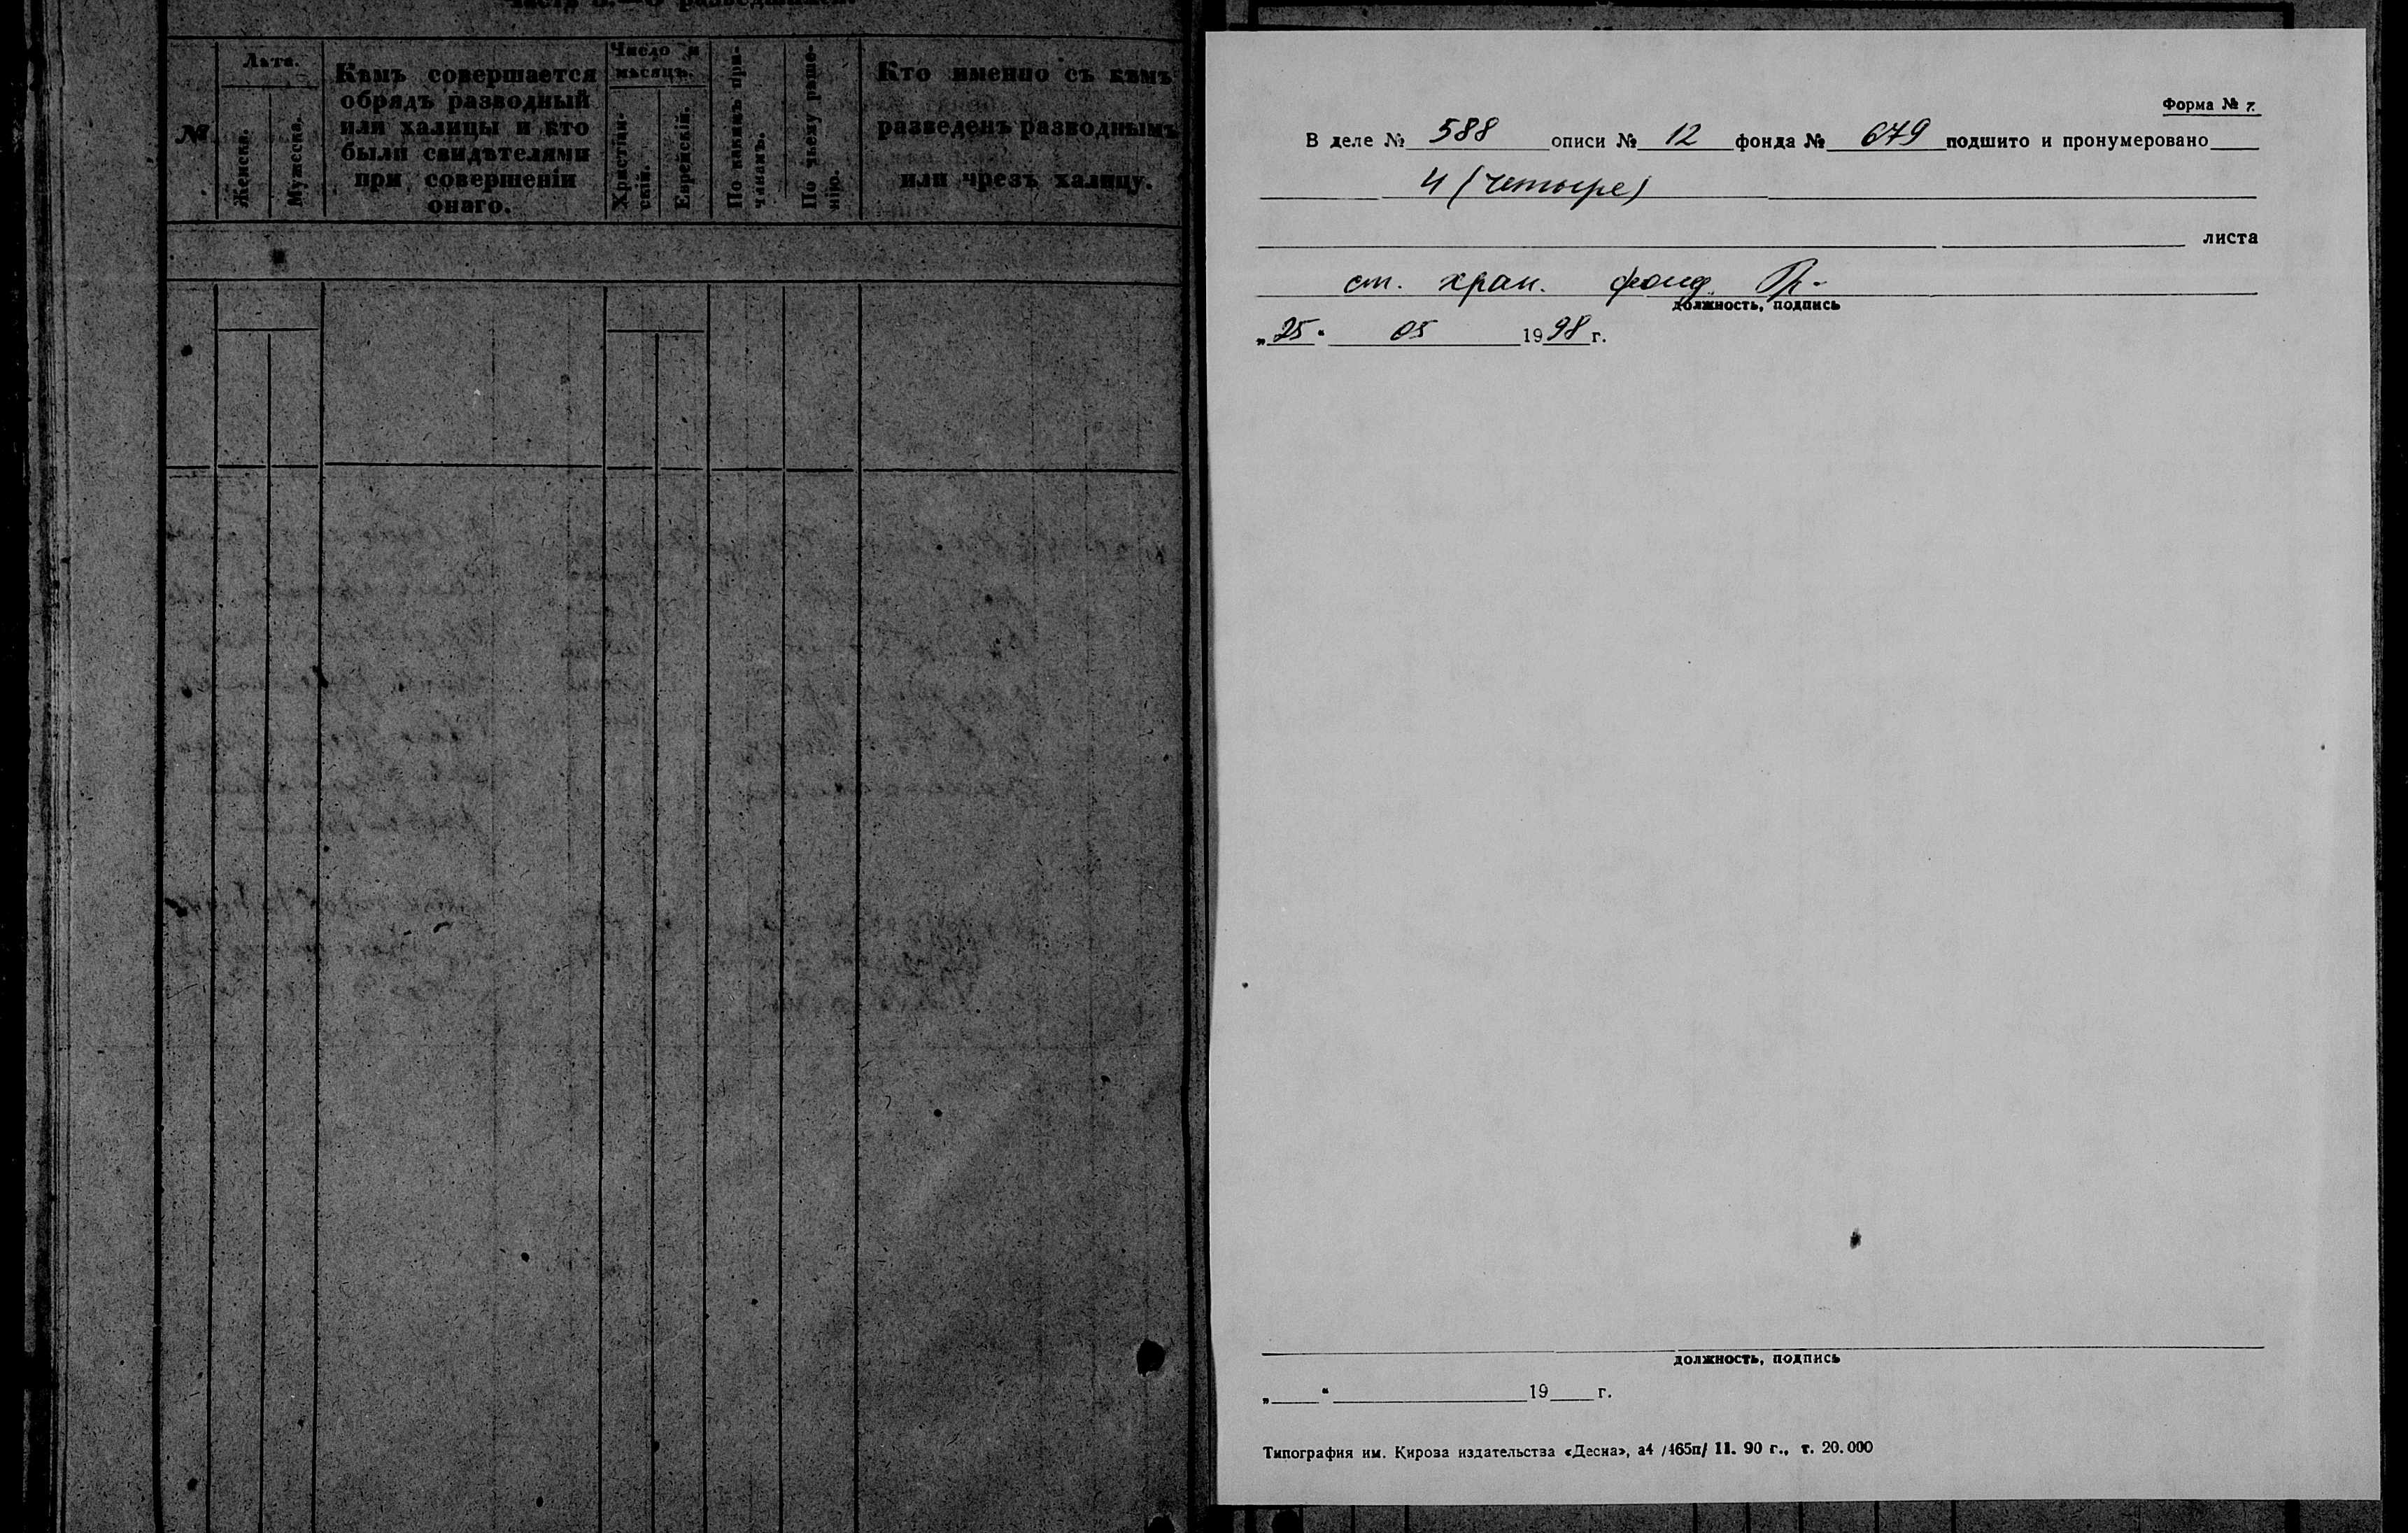 Часть 3.—О разведшихся.
№
Лѣта.
Женска.
Мужеска.
Кѣмъ совершается
обрядъ разводный
или халицы и кто
были свидѣтелями
при совершеніи
онаго.
Число и
мѣсяцъ.
Христіан-
скій.
Еврейскій.
По какимъ при-
чинамъ.
По чьему рѣше-
нію.
Кто именно съ кѣмъ
разведенъ разводнымъ
или чрезъ халицу.
Форма № 7.
В деле № 588 описи № 12 фонда № 679 подшито и пронумеровано
4 (четыре)
листа
ст. хран. фонд
должность, подпись
„25“ 05 1998 г.
должность, подпись
„ “ 19 г.
Типография им. Кирова издательства «Десна», а4 /465п/ 11. 90 г., т. 20.000